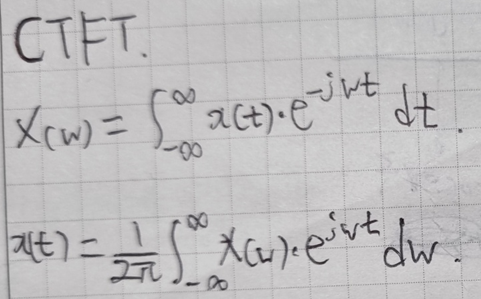 CTFT.
X(w) = ∫_{-∞}^{∞} x(t)·e^{-jwt} dt.
x(t) = \frac{1}{2π} ∫_{-∞}^{∞} X(w)·e^{jwt} dw.